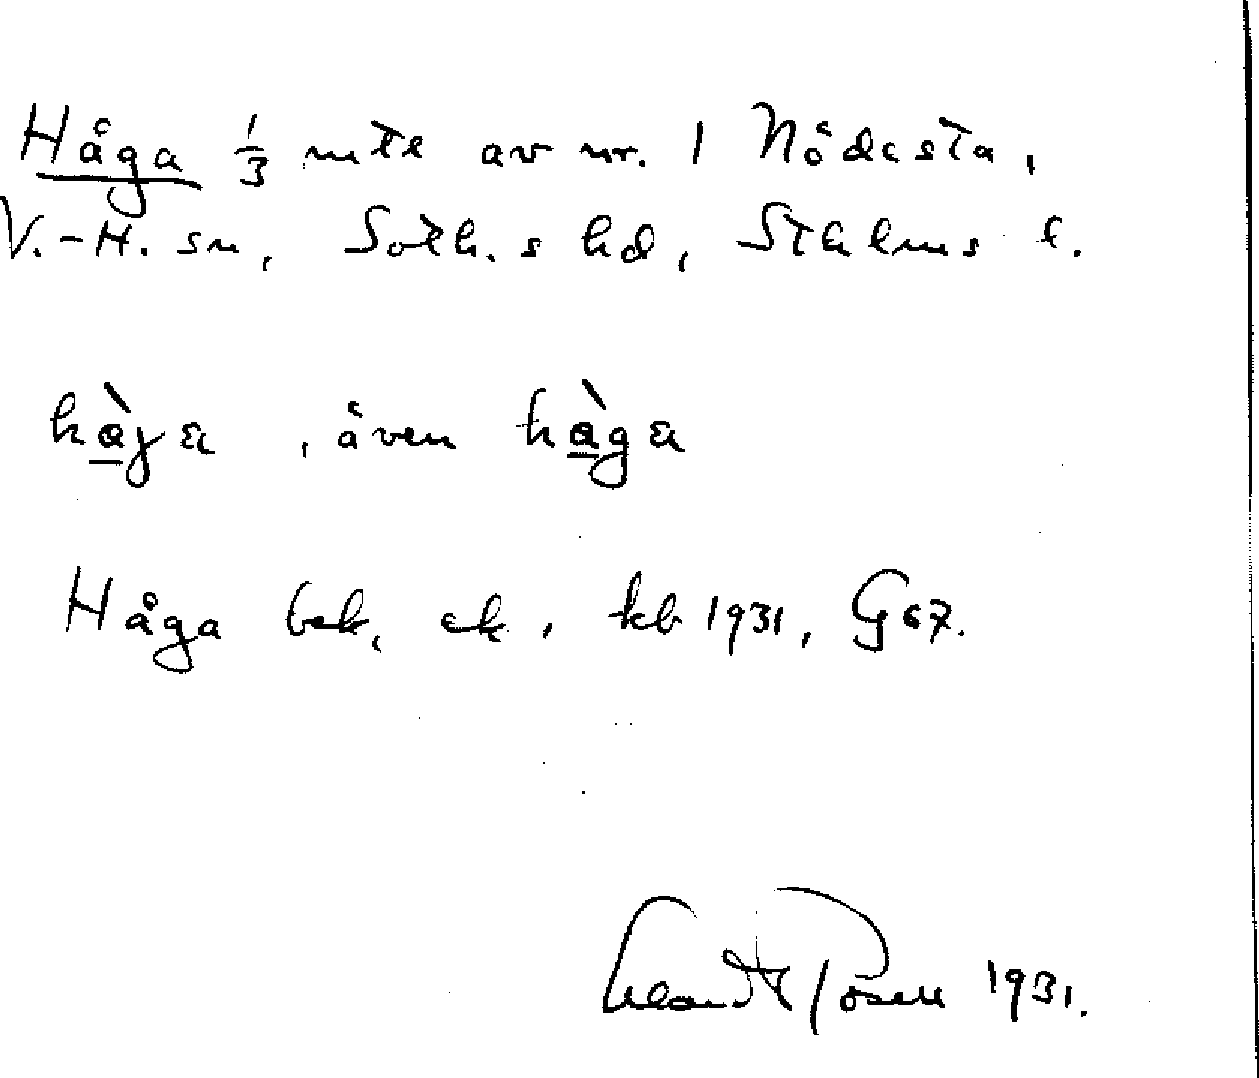 Håga 1/3 mtl av nr. 1 Nödesta,
V.-H. sn, Soth. s hd, Sthlms l.
hàꞬa, även hàga
Håga bek, ek, kb 1931, G 67.
1931.